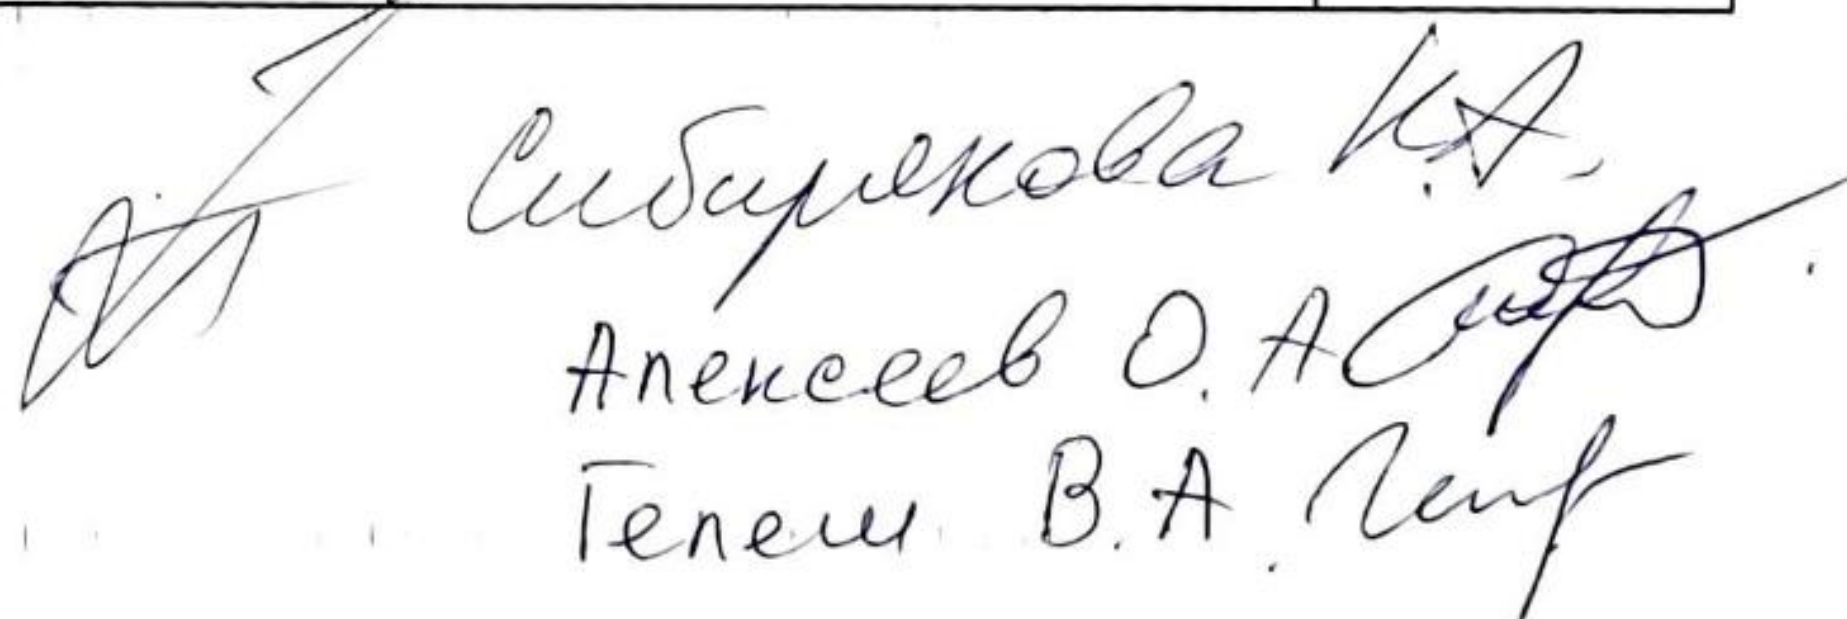 Сибирякова К.А.
Алексеев О.А
Гепеш В.А.